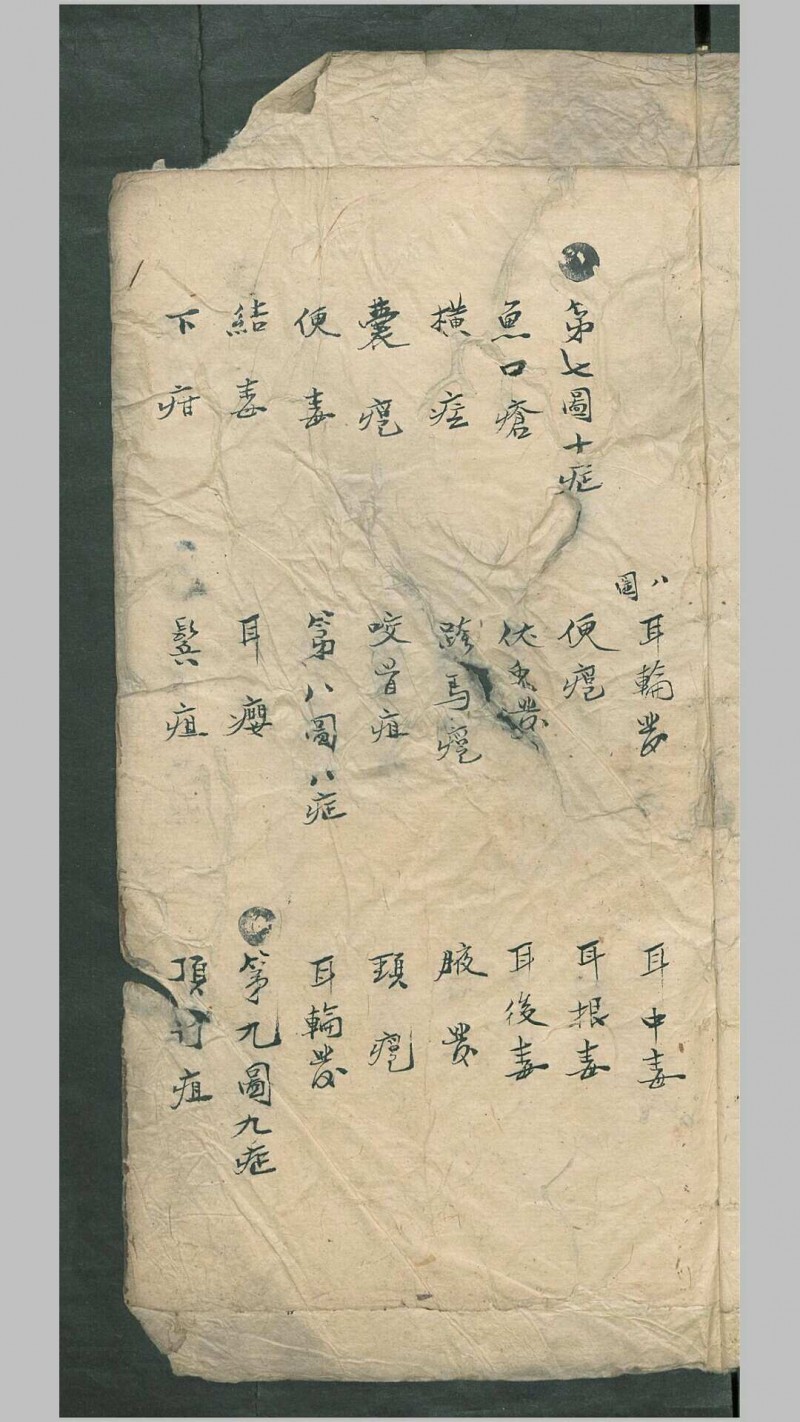 第七圖十症
魚口瘡
橫痃
囊癰
便毒
結毒
下疳
八圖
耳輪發
便癰
伏兔發
跨馬癰
咬骨疽
第八圖八症
耳癭
鬢疽
耳中毒
耳根毒
耳後毒
腋發
頸癰
耳輪發
第九圖九症
頂門疽